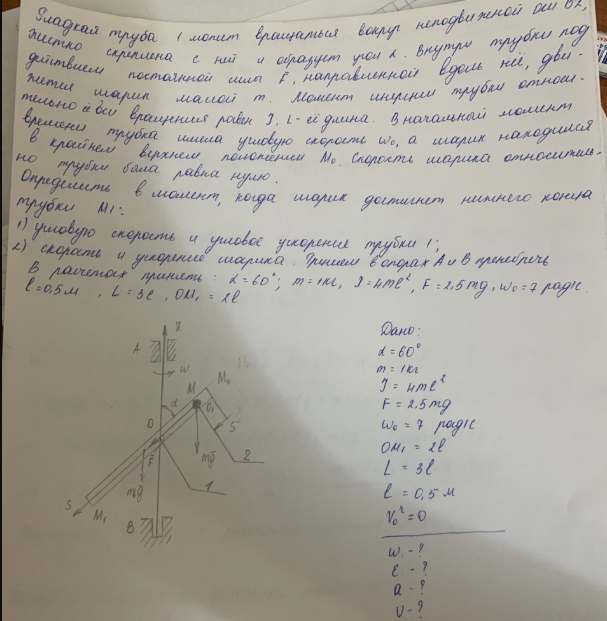 Гладкая труба 1 может вращаться вокруг неподвижной оси OZ,
жестко скреплена с ней и образует угол α. Внутри трубки под
действием постоянной силы F̄, направленной вдоль неё, дви-
жется шарик массой m. Момент инерции трубки относи-
тельно её оси вращения равен J, L - её длина. В начальный момент
времени трубка имела угловую скорость ω₀, а шарик находился
в крайнем верхнем положении M₀. Скорость шарика относитель-
но трубки была равна нулю.
Определить в момент, когда шарик достигнет нижнего конца
трубки M₁:
1) угловую скорость и угловое ускорение трубки 1;
2) скорость и ускорение шарика. Трением в опорах A и B пренебречь
В расчетах принять: α=60°; m=1кг, J=4ml², F=2,5mg, ω₀=7 рад/с
l=0,5м, L=3l, OM₁=2l
Z
A
ω
M
M₀
α
O
O₁
S
F̄
mḡ
2
m₁ḡ
1
S
M₁
B
Дано:
α=60°
m=1кг
J=4ml²
F=2,5mg
ω₀=7 рад/с
OM₁=2l
L=3l
l=0,5м
V₀²=0
ω-?
ε-?
a-?
v-?